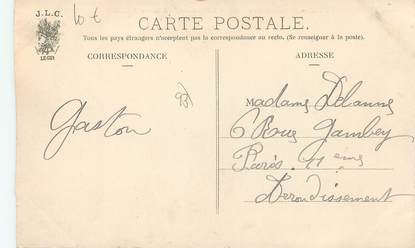 J.L.C.
10 €
CARTE POSTALE.
Tous les pays étrangers n'acceptent pas la correspondance au recto. (Se renseigner à la poste).
CORRESPONDANCE
ADRESSE
Gaston
Madame Delanne
6 Rue Gambey
Paris. 11 eme
Arrondissement